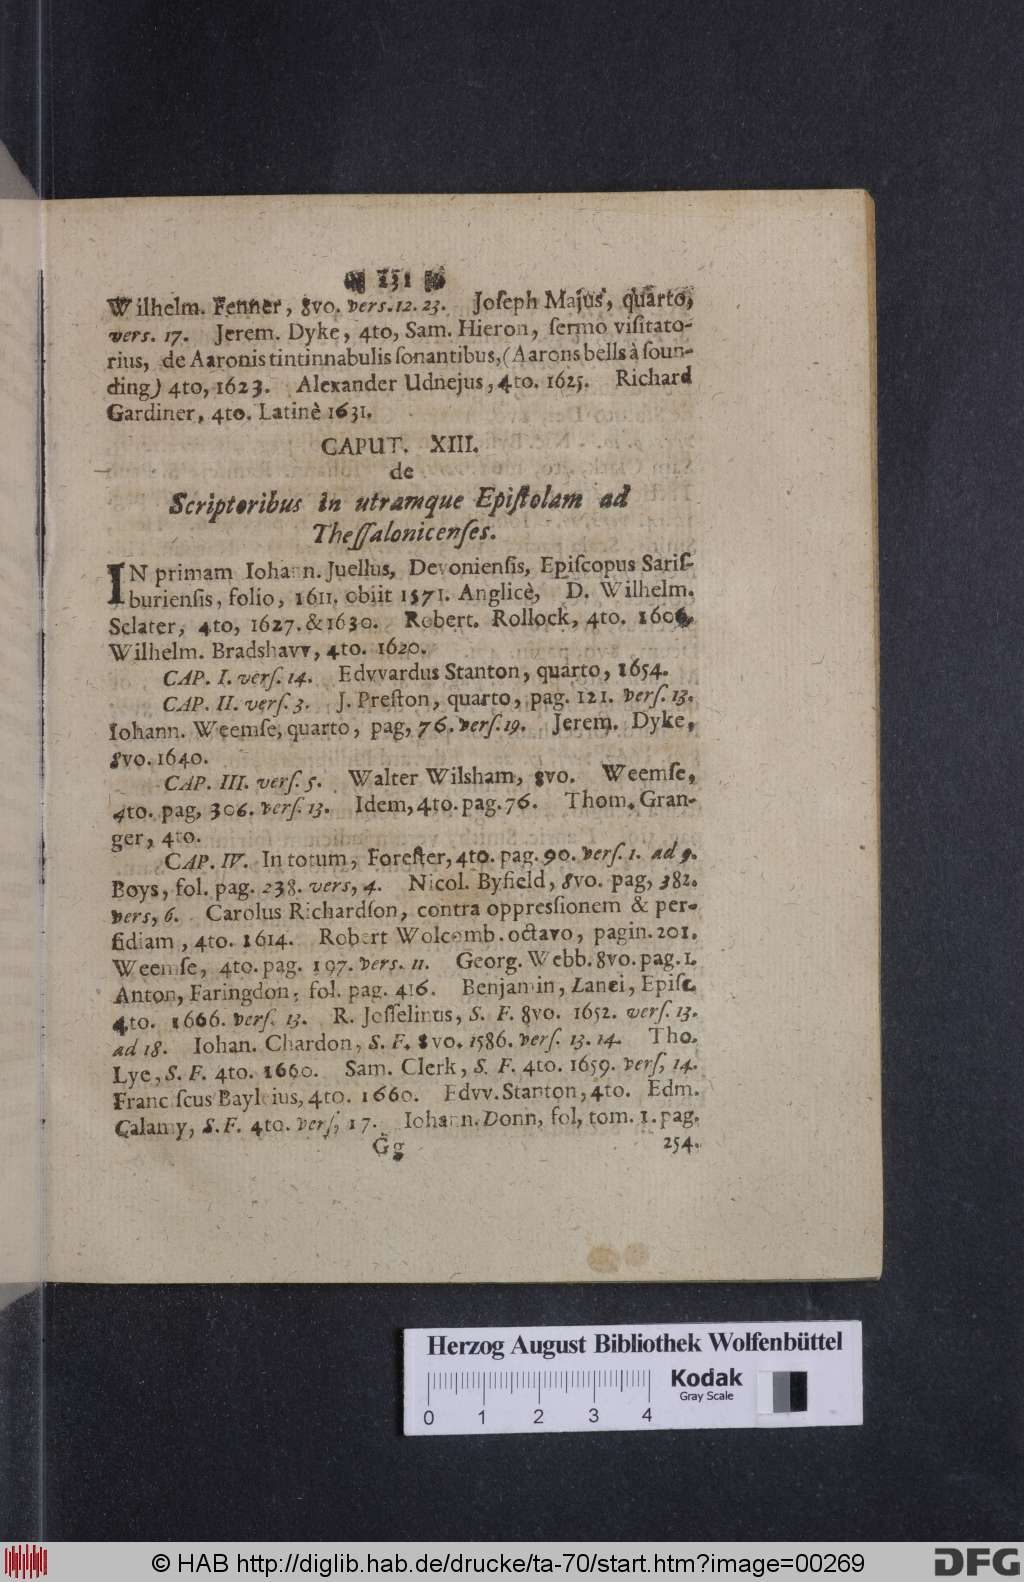 231
Wilhelm. Fenner, 8vo. vers. 12. 23. Joſeph Majus, quarto,
vers. 17. Jerem. Dyke, 4to, Sam. Hieron, ſermo viſitato-
rius, de Aaronis tintinnabulis ſonantibus, (Aarons bells à ſoun-
ding) 4to, 1623. Alexander Udnejus, 4to. 1625. Richard
Gardiner, 4to. Latinè 1631.
CAPUT. XIII.
de
Scriptoribus in utramque Epiſtolam ad
Theſſalonicenſes.
IN primam Iohann. Juellus, Devonienſis, Epiſcopus Sariſ-
burienſis, folio, 1611. obiit 1571. Anglicè, D. Wilhelm.
Sclater, 4to, 1627. & 1630. Robert. Rollock, 4to. 1606.
Wilhelm. Bradshavv, 4to. 1620.
CAP. I. verſ. 14. Edvvardus Stanton, quarto, 1654.
CAP. II. verſ. 3. J. Preſton, quarto, pag. 121. verſ. 13.
Iohann. Weemſe, quarto, pag, 76. verſ. 19. Jerem. Dyke,
8vo. 1640.
CAP. III. verſ. 5. Walter Wilsham, 8vo. Weemſe,
4to. pag, 306. verſ. 13. Idem, 4to. pag. 76. Thom. Gran-
ger, 4to.
CAP. IV. In totum, Foreſter, 4to. pag. 90. verſ. 1. ad 9.
Boys, fol. pag. 238. vers, 4. Nicol. Byfield, 8vo. pag, 382.
vers, 6. Carolus Richardſon, contra oppreſsionem & per-
fidiam, 4to. 1614. Robert Wolcomb. octavo, pagin. 201.
Weemſe, 4to. pag. 197. vers. 11. Georg. Webb. 8vo. pag. 1.
Anton, Faringdon, fol. pag. 416. Benjamin, Lanei, Epiſc.
4to. 1666. verſ. 13. R. Joſſelinus, S. F. 8vo. 1652. verſ. 13.
ad 18. Iohan. Chardon, S. F. 8vo. 1586. verſ. 13. 14. Tho.
Lye, S. F. 4to. 1660. Sam. Clerk, S. F. 4to. 1659. verſ, 14.
Franciſcus Bayleius, 4to. 1660. Edvv. Stanton, 4to. Edm.
Calamy, S. F. 4to. verſ, 17. Iohann. Donn, fol, tom. 1. pag.
Gg 254.
Herzog August Bibliothek Wolfenbüttel
Kodak
Gray Scale
0 1 2 3 4
© HAB http://diglib.hab.de/drucke/ta-70/start.htm?image=00269
DFG